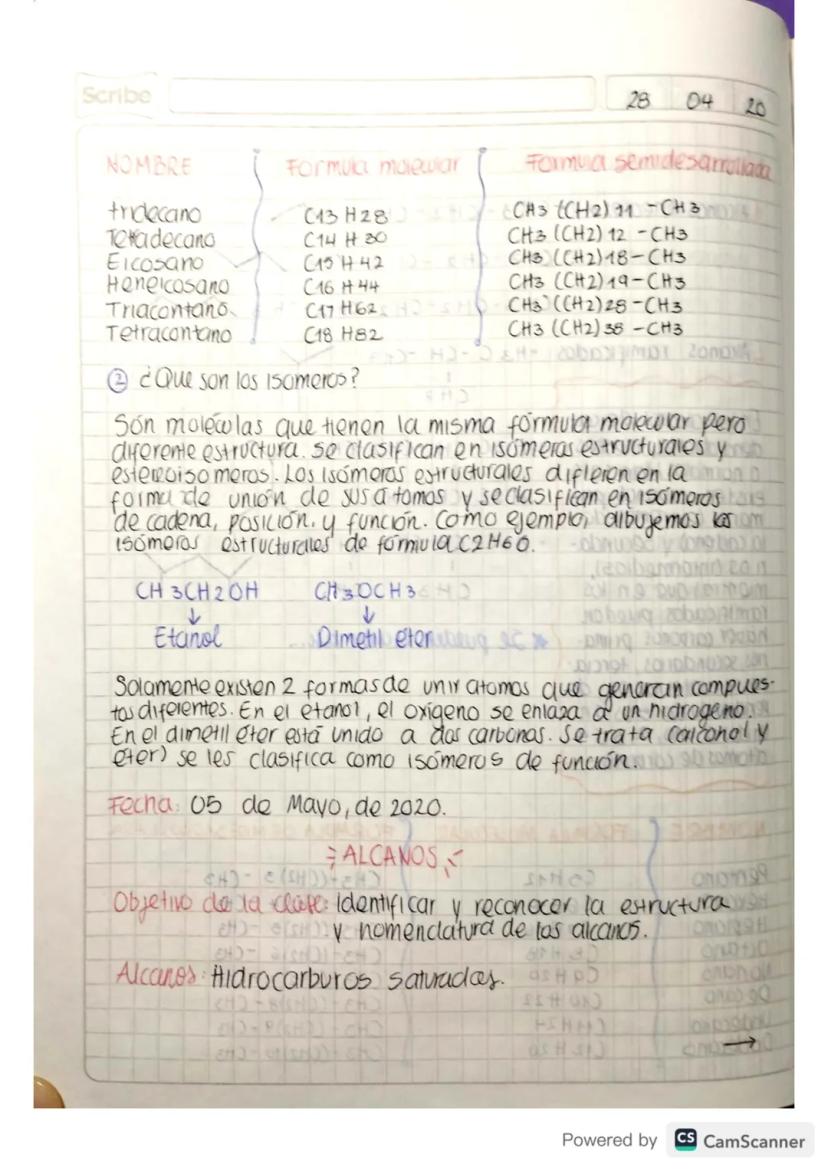 Scribe
28 04 20
NOMBRE Formula molecular Formula semidesarrollada
tridecano C13 H28 CH3 (CH2) 11 - CH3
Tetradecano C14 H 30 CH3 (CH2) 12 - CH3
Eicosano C15 H 42 CH3 (CH2) 18 - CH3
Heneicosano C16 H 44 CH3 (CH2) 19 - CH3
Triacontano C17 H62 CH3 (CH2) 28 - CH3
Tetracontano C18 H82 CH3 (CH2) 38 - CH3
② ¿Que son los isomeros?
Són moléculas que tienen la misma fórmula molecular pero
diferente estructura. se clasifican en isómeros estructurales y
estereoisomeros. Los isómeros estructurales difieren en la
forma de unión de sus atomos y se clasifican en isómeros
de cadena, posición, y función. Como ejemplo, dibujemos los
isómeros estructurales de fórmula C2H6O.
CH 3CH2OH CH3OCH3
↓ ↓
Etanol Dimetil eter
Solamente existen 2 formas de unir atomos que generan compues-
tos diferentes. En el etanol, el oxígeno se enlaza a un hidrogeno.
En el dimetil éter está unido a dos carbonos. Se trata (alcohol y
éter) se les clasifica como isómeros de función.
Fecha: 05 de Mayo, de 2020.
ALCANOS
Objetivo de la clase: Identificar y reconocer la estructura
y nomenclatura de los alcanos.
Alcanos: Hidrocarburos saturados.
→
Powered by CS CamScanner